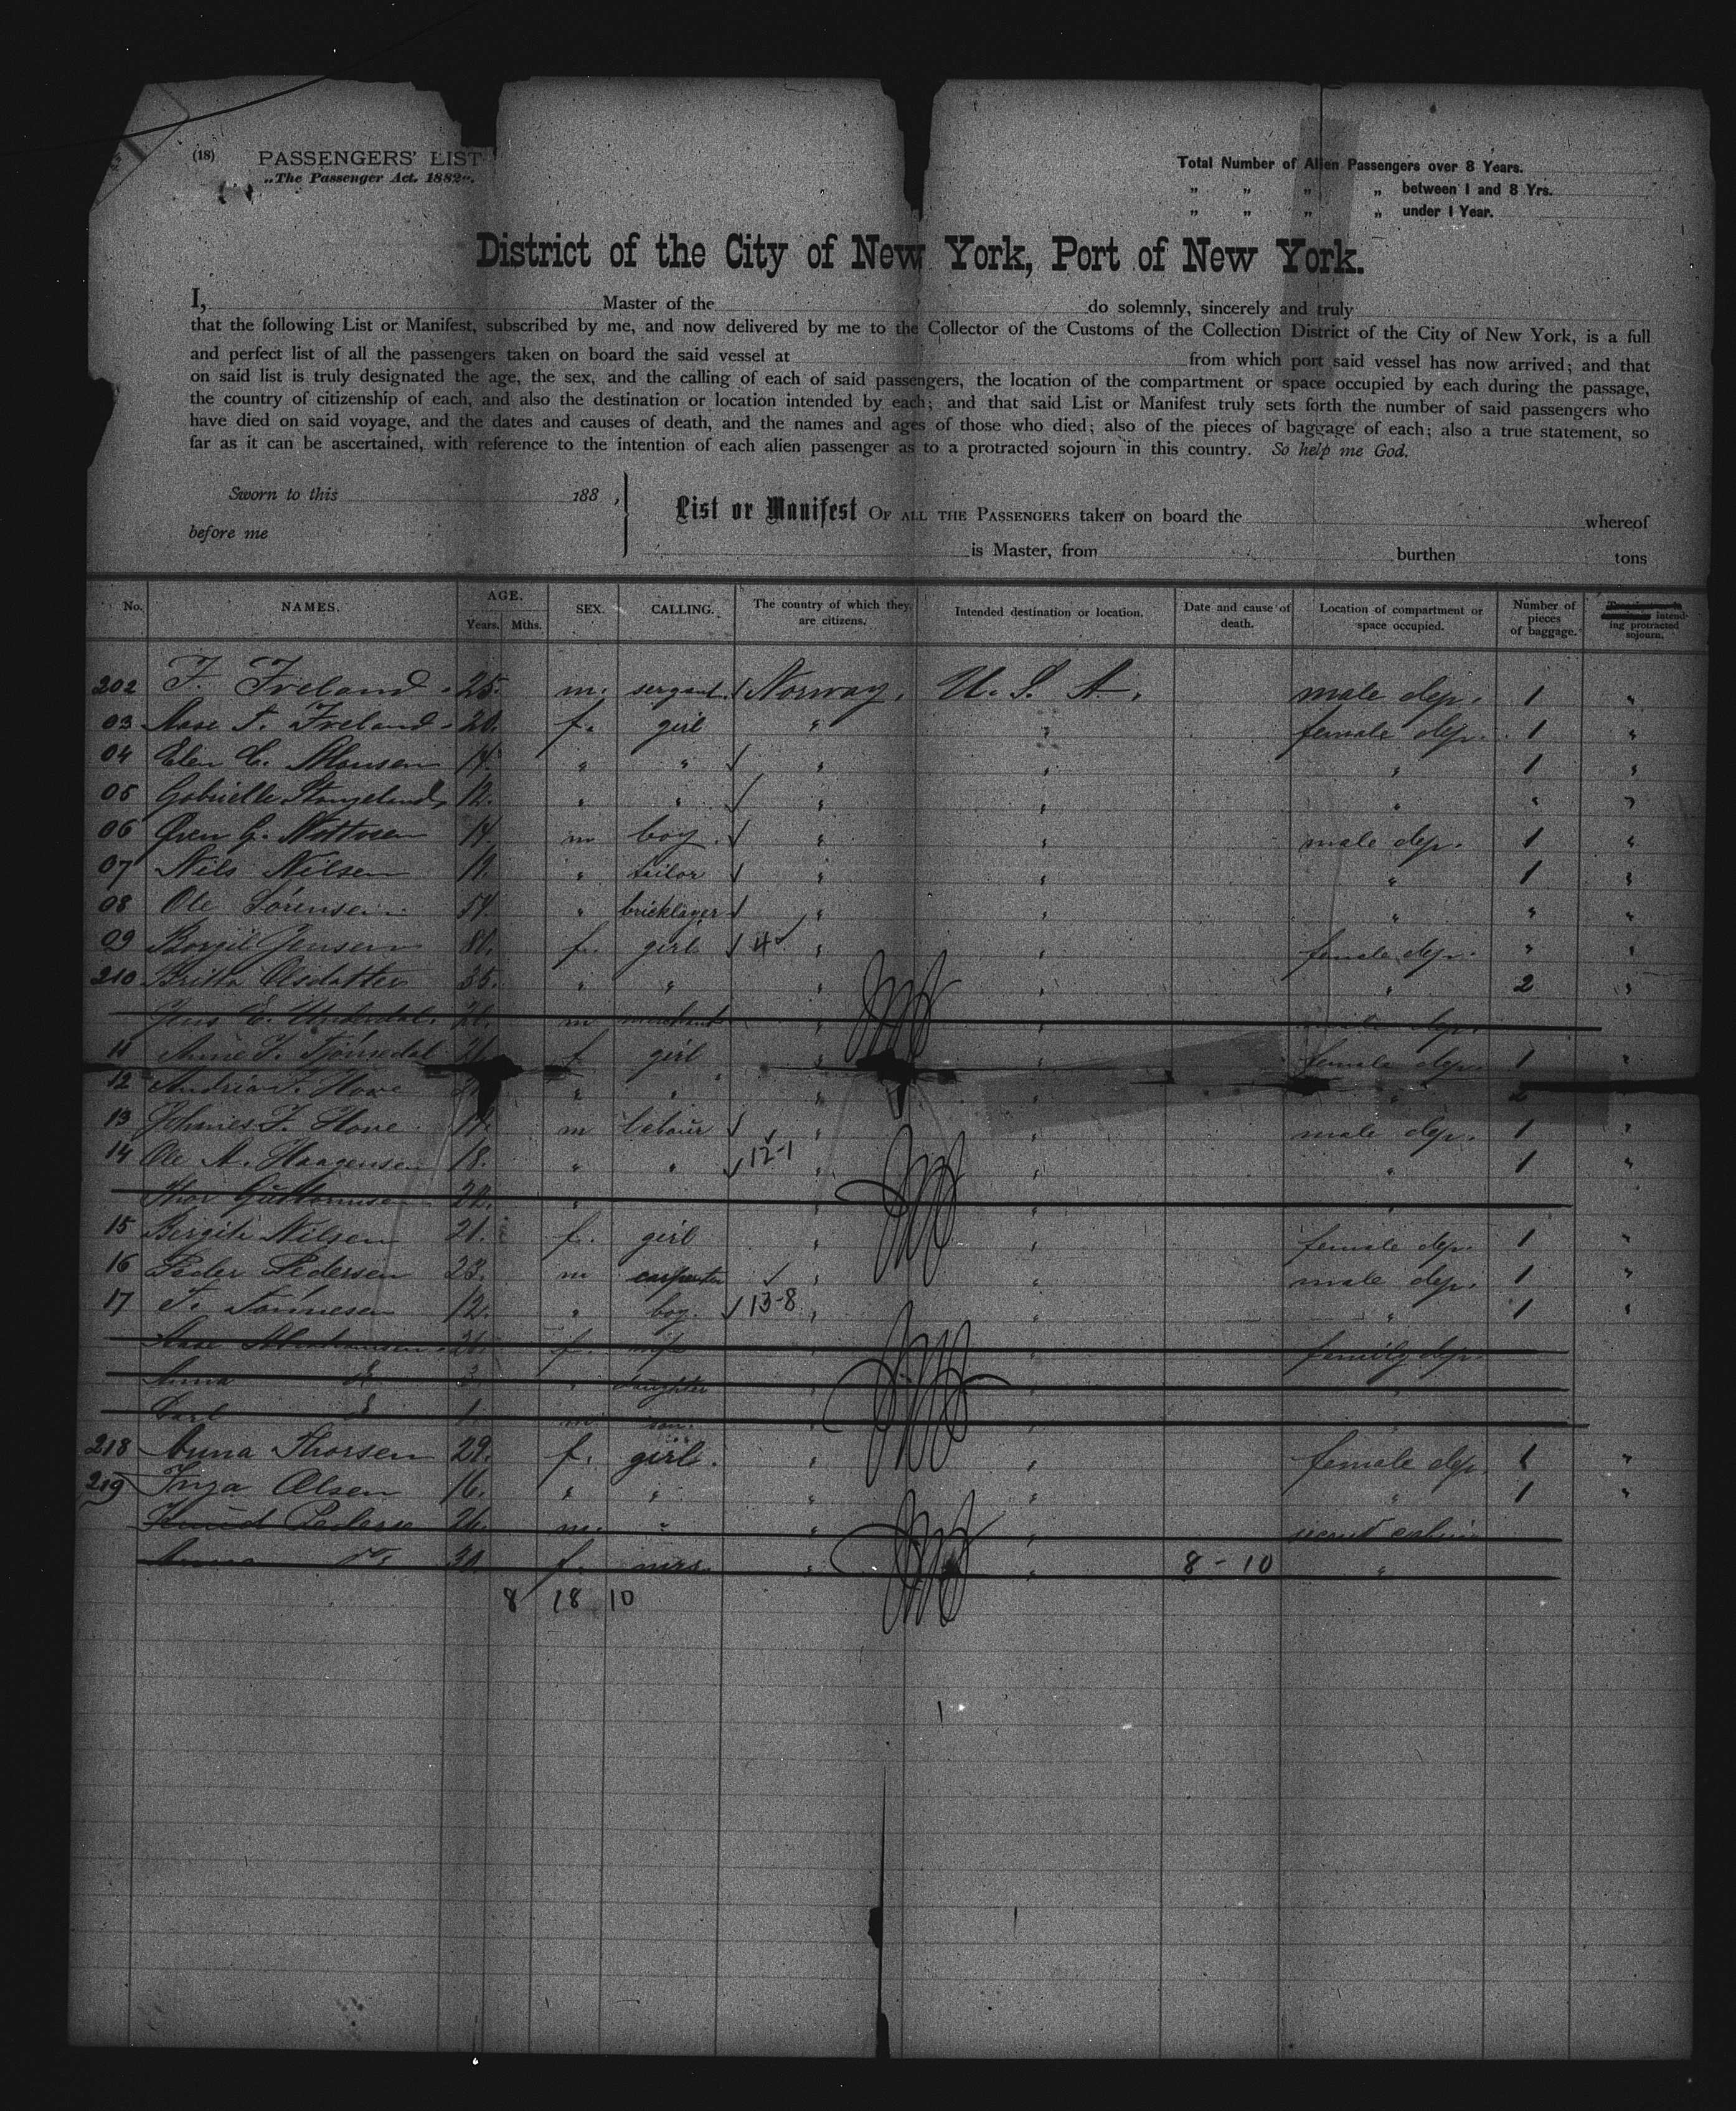 (18) PASSENGERS' LIST
„The Passenger Act. 1882".
Total Number of Alien Passengers over 8 Years.
„ „ „ „ between 1 and 8 Yrs.
„ „ „ „ under 1 Year.
District of the City of New York, Port of New York.
I, Master of the do solemnly, sincerely and truly
that the following List or Manifest, subscribed by me, and now delivered by me to the Collector of the Customs of the Collection District of the City of New York, is a full
and perfect list of all the passengers taken on board the said vessel at from which port said vessel has now arrived; and that
on said list is truly designated the age, the sex, and the calling of each of said passengers, the location of the compartment or space occupied by each during the passage,
the country of citizenship of each, and also the destination or location intended by each; and that said List or Manifest truly sets forth the number of said passengers who
have died on said voyage, and the dates and causes of death, and the names and ages of those who died; also of the pieces of baggage of each; also a true statement, so
far as it can be ascertained, with reference to the intention of each alien passenger as to a protracted sojourn in this country. So help me God.
Sworn to this 188 ,
before me
List or Manifest OF ALL THE PASSENGERS taken on board the whereof
is Master, from burthen tons
No. NAMES. AGE. Years. Mths. SEX. CALLING. The country of which they are citizens. Intended destination or location. Date and cause of death. Location of compartment or space occupied. Number of pieces of baggage. Intending protracted sojourn.
202 T. Freland 25. m. Norway, U. S. A. male dep. 1 "
03 T. Freland 20. f. girl " " female dep. 1 "
04 Elen C. 14. " " " " " 1 "
05 Gabrielle Stangeland 12. " " " " " " "
06 G. 14. m boy. " " male dep. 1 "
07 Nils Nilsen 19. " tailor " " " 1 "
08 Ole Sörensen 54. " bricklayer " " " " "
09 Jensen f. girl 4 " " female dep. " "
210 Britta Olsdatter 35. " " " " " 2 "
Jens E. m merchant " " male dep.
11 Anne T. f girl " " female dep. 1 "
12 Andria T. Hove " " " " " 2
13 Johnnes T. Hove m labour " " male dep. 1 "
14 Ole A. Haagensen 18. " " 12-1 " " " 1 "
Thor Guttormsen " " " "
15 Bergite Nilsen 21. f. girl " " female dep. 1 "
16 Peder Pedersen 23. m carpenter " " male dep. 1 "
17 T. Tönnesen 12. " boy. 13-8 " " " 1 "
f. wife " " family dep.
Anna 3. " daughter " " "
Carl 1. m son. " " "
218 Anna Thorsen 29. f. girl. " " female dep. 1 "
219 Inga Olsen 16. " " " " " 1 "
Knud 26. m. " " " cabin
Anna 30. f. mrs. " " 8-10 "
8 18 10